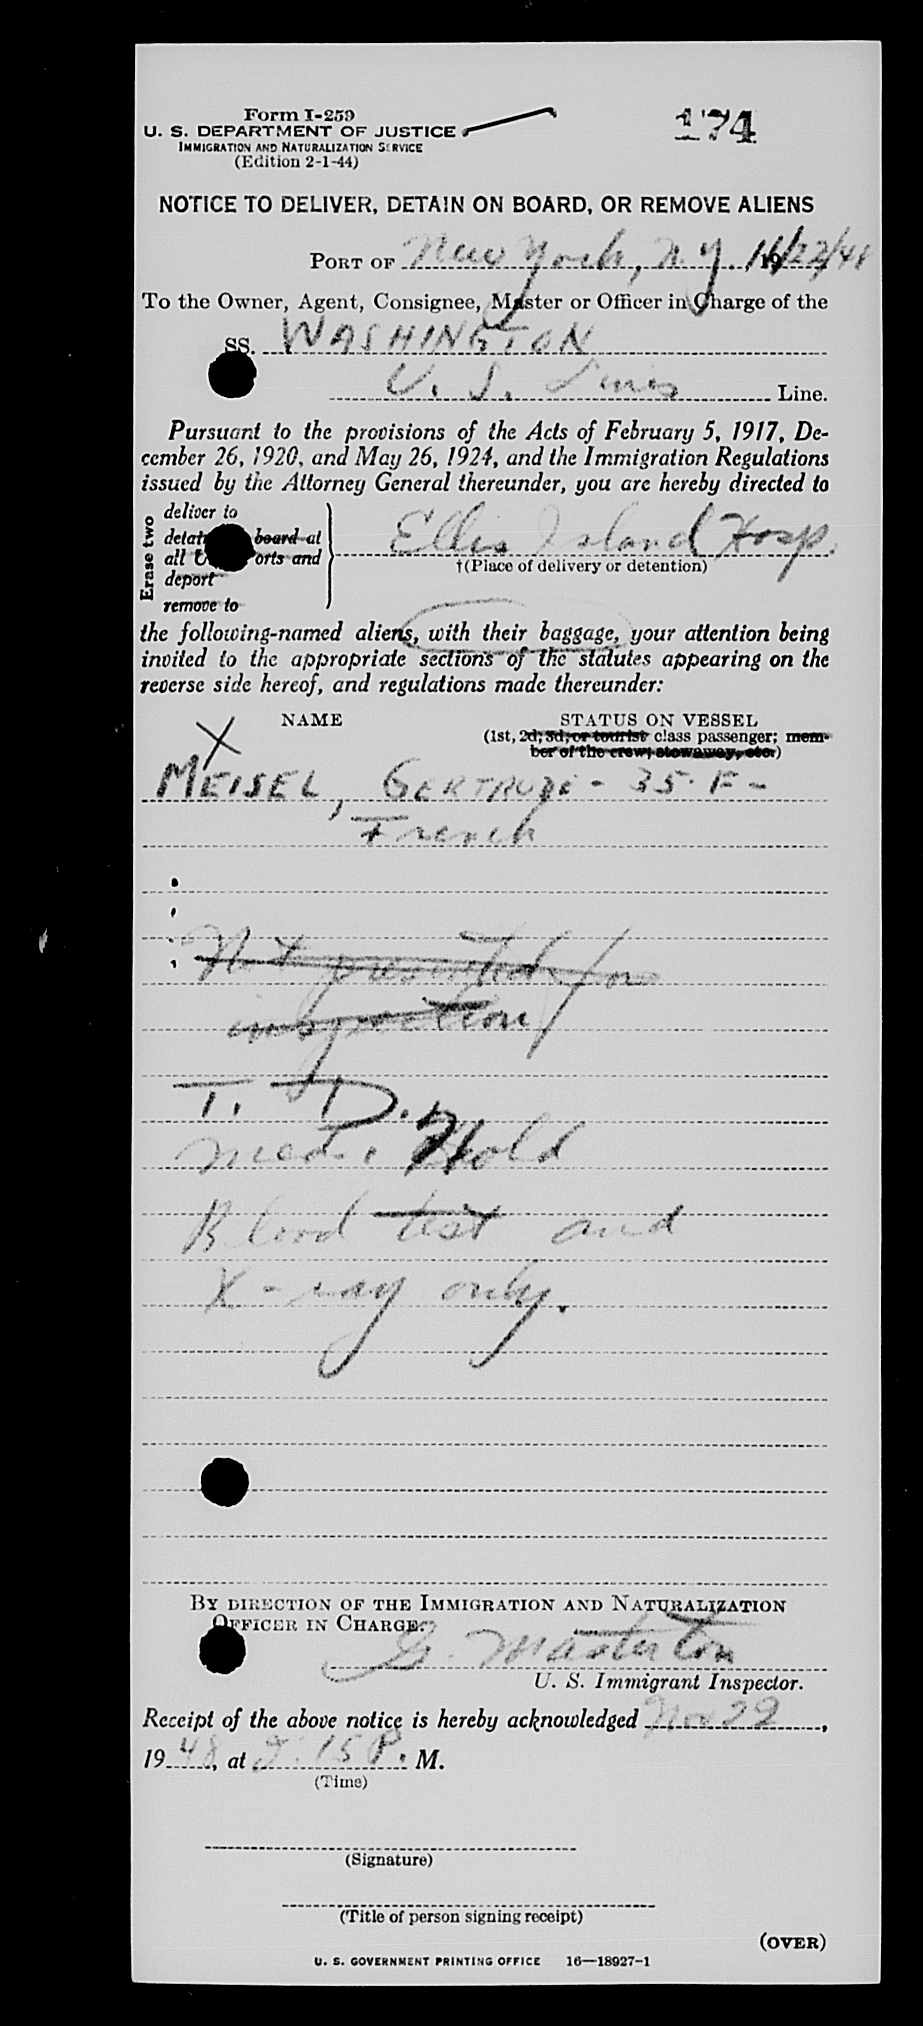 Form I-259
174
U. S. DEPARTMENT OF JUSTICE
IMMIGRATION AND NATURALIZATION SERVICE
(Edition 2-1-44)
NOTICE TO DELIVER, DETAIN ON BOARD, OR REMOVE ALIENS
PORT OF New York, N.Y. 11/22/48
To the Owner, Agent, Consignee, Master or Officer in Charge of the
SS. WASHINGTON
U. S. Lines Line.
Pursuant to the provisions of the Acts of February 5, 1917, De-
cember 26, 1920, and May 26, 1924, and the Immigration Regulations
issued by the Attorney General thereunder, you are hereby directed to
Erase two
deliver to
board at
all orts and
deport
remove to
Ellis Island Hosp.
†(Place of delivery or detention)
the following-named aliens, with their baggage, your attention being
invited to the appropriate sections of the statutes appearing on the
reverse side hereof, and regulations made thereunder:
NAME
STATUS ON VESSEL
(1st, 2d, 3d, or tourist class passenger; mem-
ber of the crew, stowaway, etc.)
X
MEISEL, GERTRUDE - 35 - F -
French
Not presented for
inspection
T. D.
med. Hold
Blood test and
X-ray only.
BY DIRECTION OF THE IMMIGRATION AND NATURALIZATION
OFFICER IN CHARGE.
G. Masterton
U. S. Immigrant Inspector.
Receipt of the above notice is hereby acknowledged Nov 22,
1948, at 2:15 P. M.
(Time)
(Signature)
(Title of person signing receipt)
(OVER)
U. S. GOVERNMENT PRINTING OFFICE 16—18927-1